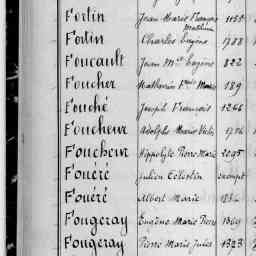 Fortin Jean Marie François 1151
Mathurin
Fortin Charles Eugène 1788
Foucault Jean Mie Eugène 822
Foucher Mathurin Marie 189
Fouché Joseph François 1266
Foucheur Adolphe Marie 1776
Foucheur Hippolyte Pierre Marie 2095
Fouéré Julien Célestin exempt
Fouéré Albert Marie
Fougeray Eugène Marie Pierre
Fougeray Pierre Marie Jules 1323